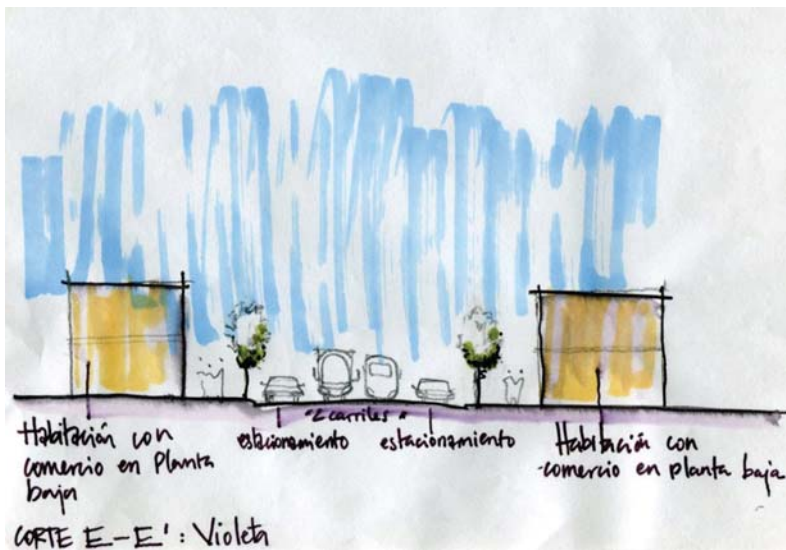 "2 carriles"
Habitación con
comercio en Planta
baja
estacionamiento
estacionamiento
Habitación con
comercio en planta baja
CORTE E-E' : Violeta